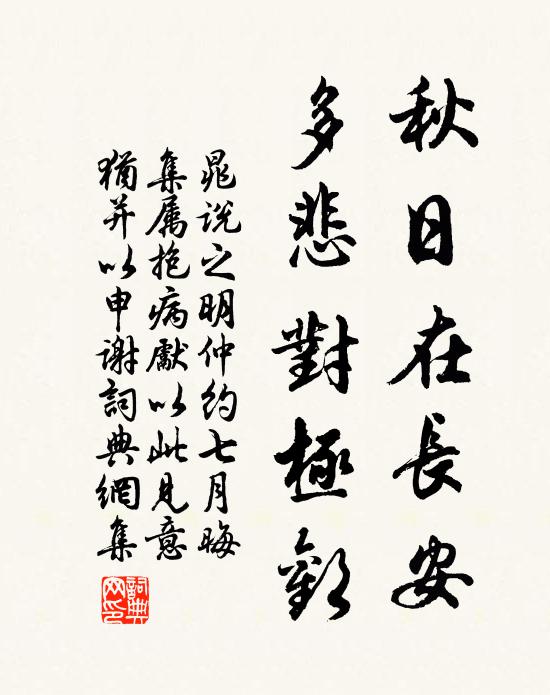 秋日在長安
多悲對極歡
晁說之明仲約七月晦
集屬抱病獻以此見意
猶并以申謝詞典網集
詞典
网印